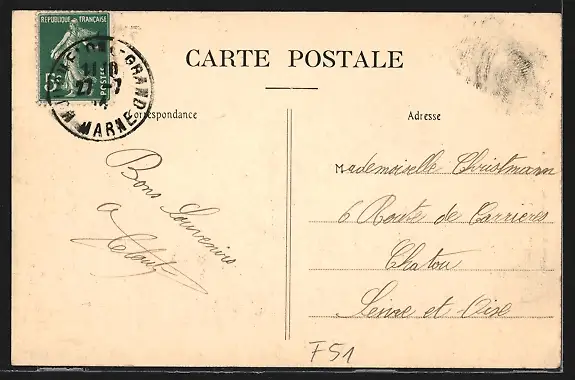 REPUBLIQUE FRANÇAISE
5c POSTES
GRAND
11-10
27-7
14
HTE MARNE
CARTE POSTALE
Correspondance
Adresse
Bons Souvenirs
a
Mademoiselle Christmann
6 Route de Carrieres
Chatou
Seine et Oise
F51